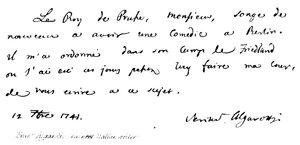 Le Roy de Prusse, monsieur, songe de
nouveau a avoir une Comedie a Berlin.
Il m'a ordonné dans son Camp de Friedland
ou j'ai été ces jours passés luy faire ma cour,
de vous ecrire a ce sujet.
12 7bre 1741.
Algarotti